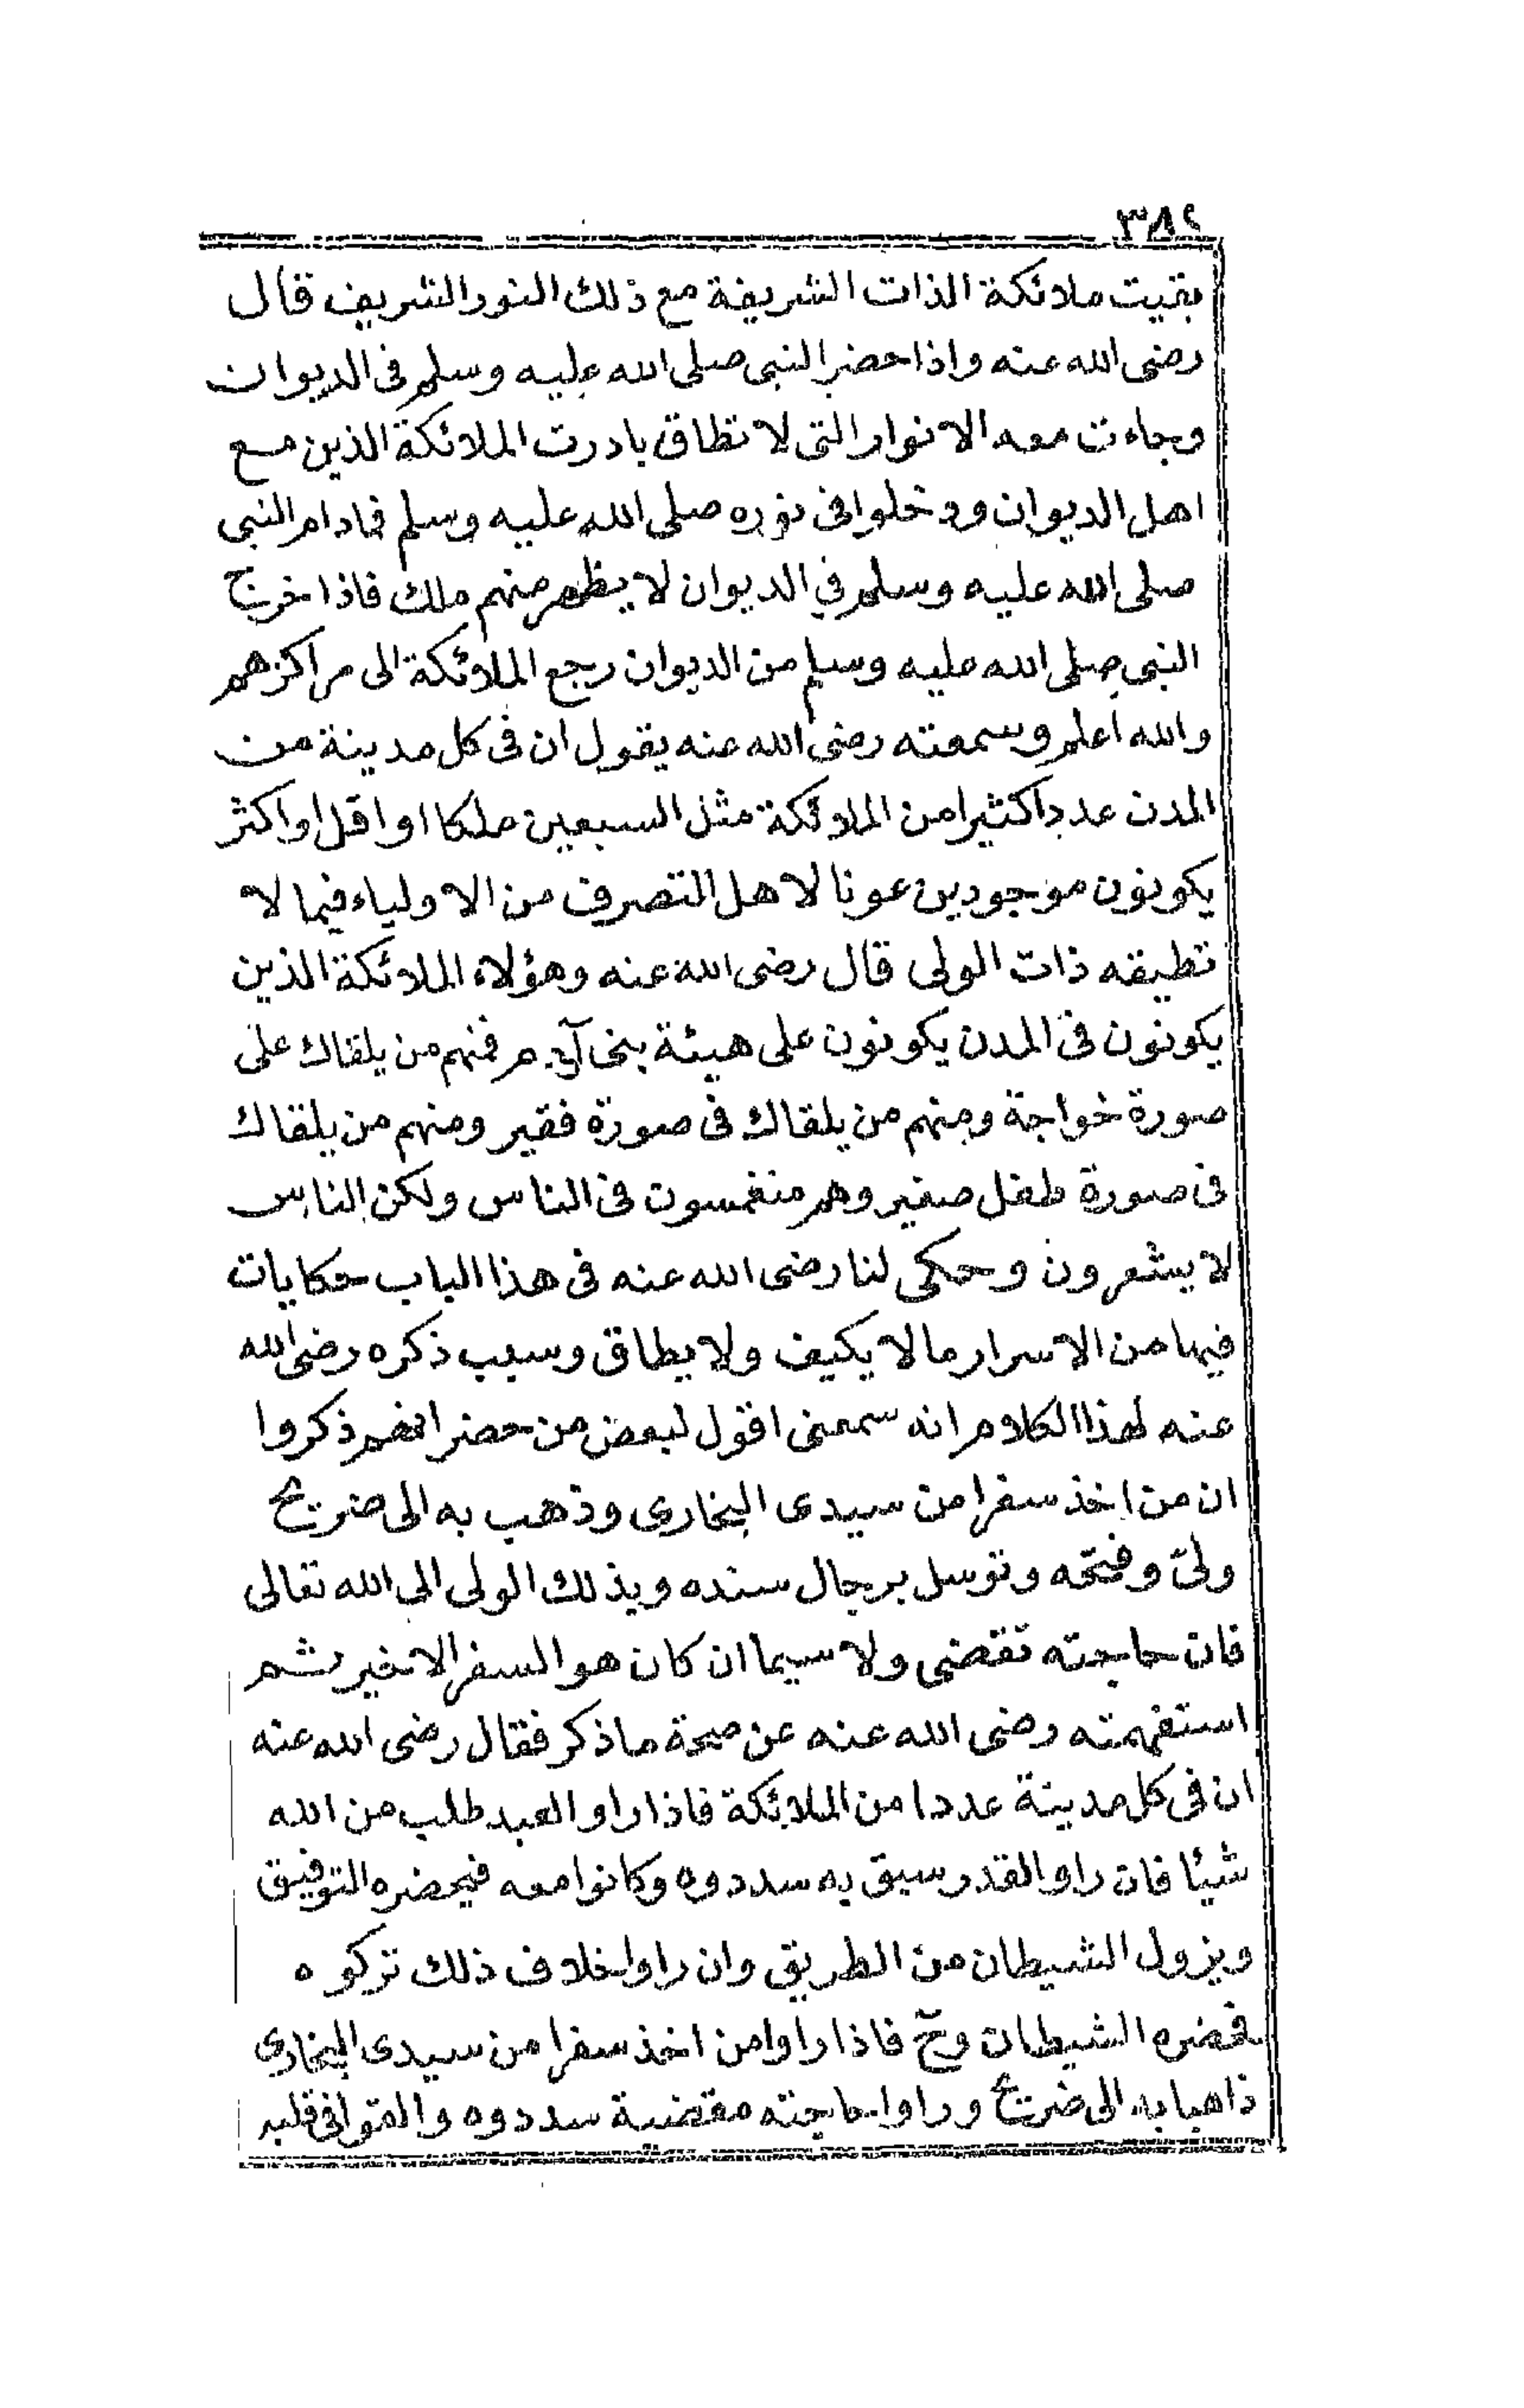 ٣٨٢
بقيت ملائكة الذات الشريفة مع ذلك النور الشريف قال
رضى الله عنه واذا حضر النبى صلى الله عليه وسلم فى الديوان
وجاءت معه الانوار التى لا تطاق بادرت الملائكة الذين مع
اهل الديوان ودخلوا فى نوره صلى الله عليه وسلم فمادام النبى
صلى الله عليه وسلم في الديوان لا يظهر منهم ملك فاذا خرج
النبى صلى الله عليه وسلم من الديوان رجع الملائكة الى مراكزهم
والله أعلم وسمعته رضى الله عنه يقول ان فى كل مدينة من
المدن عددا كثيرا من الملائكة مثل السبعين ملكا او اقل او اكثر
يكونون موجودين عونا لاهل التصرف من الاولياء فيما لا
تطيقه ذات الولى قال رضى الله عنه وهؤلاء الملائكة الذين
يكونون فى المدن يكونون على هيئة بنى آدم فمنهم من يلقاك على
صورة خواجة ومنهم من يلقاك فى صورة فقير ومنهم من يلقاك
فى صورة طفل صغير وهم منغمسون فى الناس ولكن الناس
لا يشعرون وحكى لنا رضى الله عنه فى هذا الباب حكايات
فيها من الاسرار ما لا يكيف ولا يطاق وسبب ذكره رضى الله
عنه لهذا الكلام انه سمعنى اقول لبعض من حضر انهم ذكروا
ان من اخذ سفرا من سيدى البخارى وذهب به الى ضريح
ولىّ وفتحه وتوسل برجال سنده وبذلك الولى الى الله تعالى
فان حاجته تقضى ولا سيما ان كان هو السفر الاخير ثم
استفهمته رضى الله عنه عن صحة ما ذكر فقال رضى الله عنه
ان فى كل مدينة عددا من الملائكة فاذا راو العبد طلب من الله
شيئا فان راو القدر سبق به سددوه وكانوا معه فيحضره التوفيق
ويزول الشيطان من الطريق وان راوا خلاف ذلك تركوه
فحضره الشيطان وحّ فاذا راوا من اخذ سفرا من سيدى البخارى
ذاهبا به الى ضريح وراوا حاجته مقضية سددوه والقوا فى قلبه